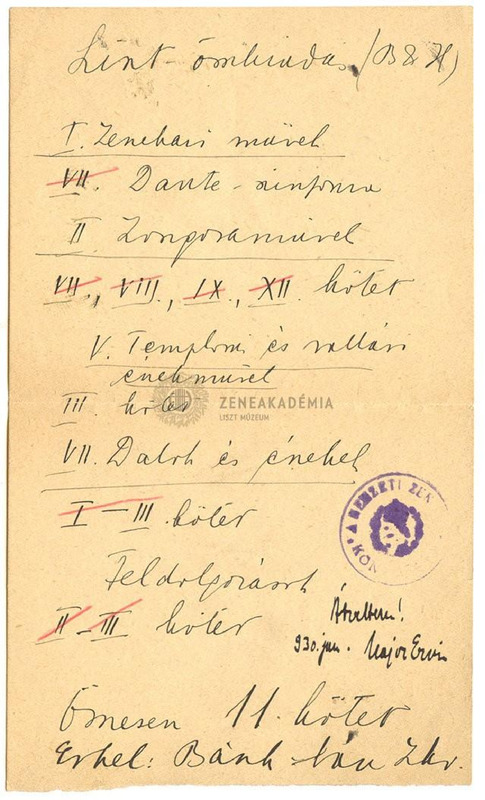 Liszt-összkiadás (B & H)
I. Zenekari művek
VII. Dante-szinfonia
II Zongoraművek
VII., VIII., IX., XII. kötet
V. Templomi és vallási
énekművek
III. kötet
ZENEAKADÉMIA
LISZT MÚZEUM
VII. Dalok és énekek
I – III. kötet
A NEMZETI ZE
KÖN
Feldolgozások
II – III kötet
Átvettem!
930. jan. Major Ervin
Összesen 11. kötet
Erkel: Bánk-bán Zkv.